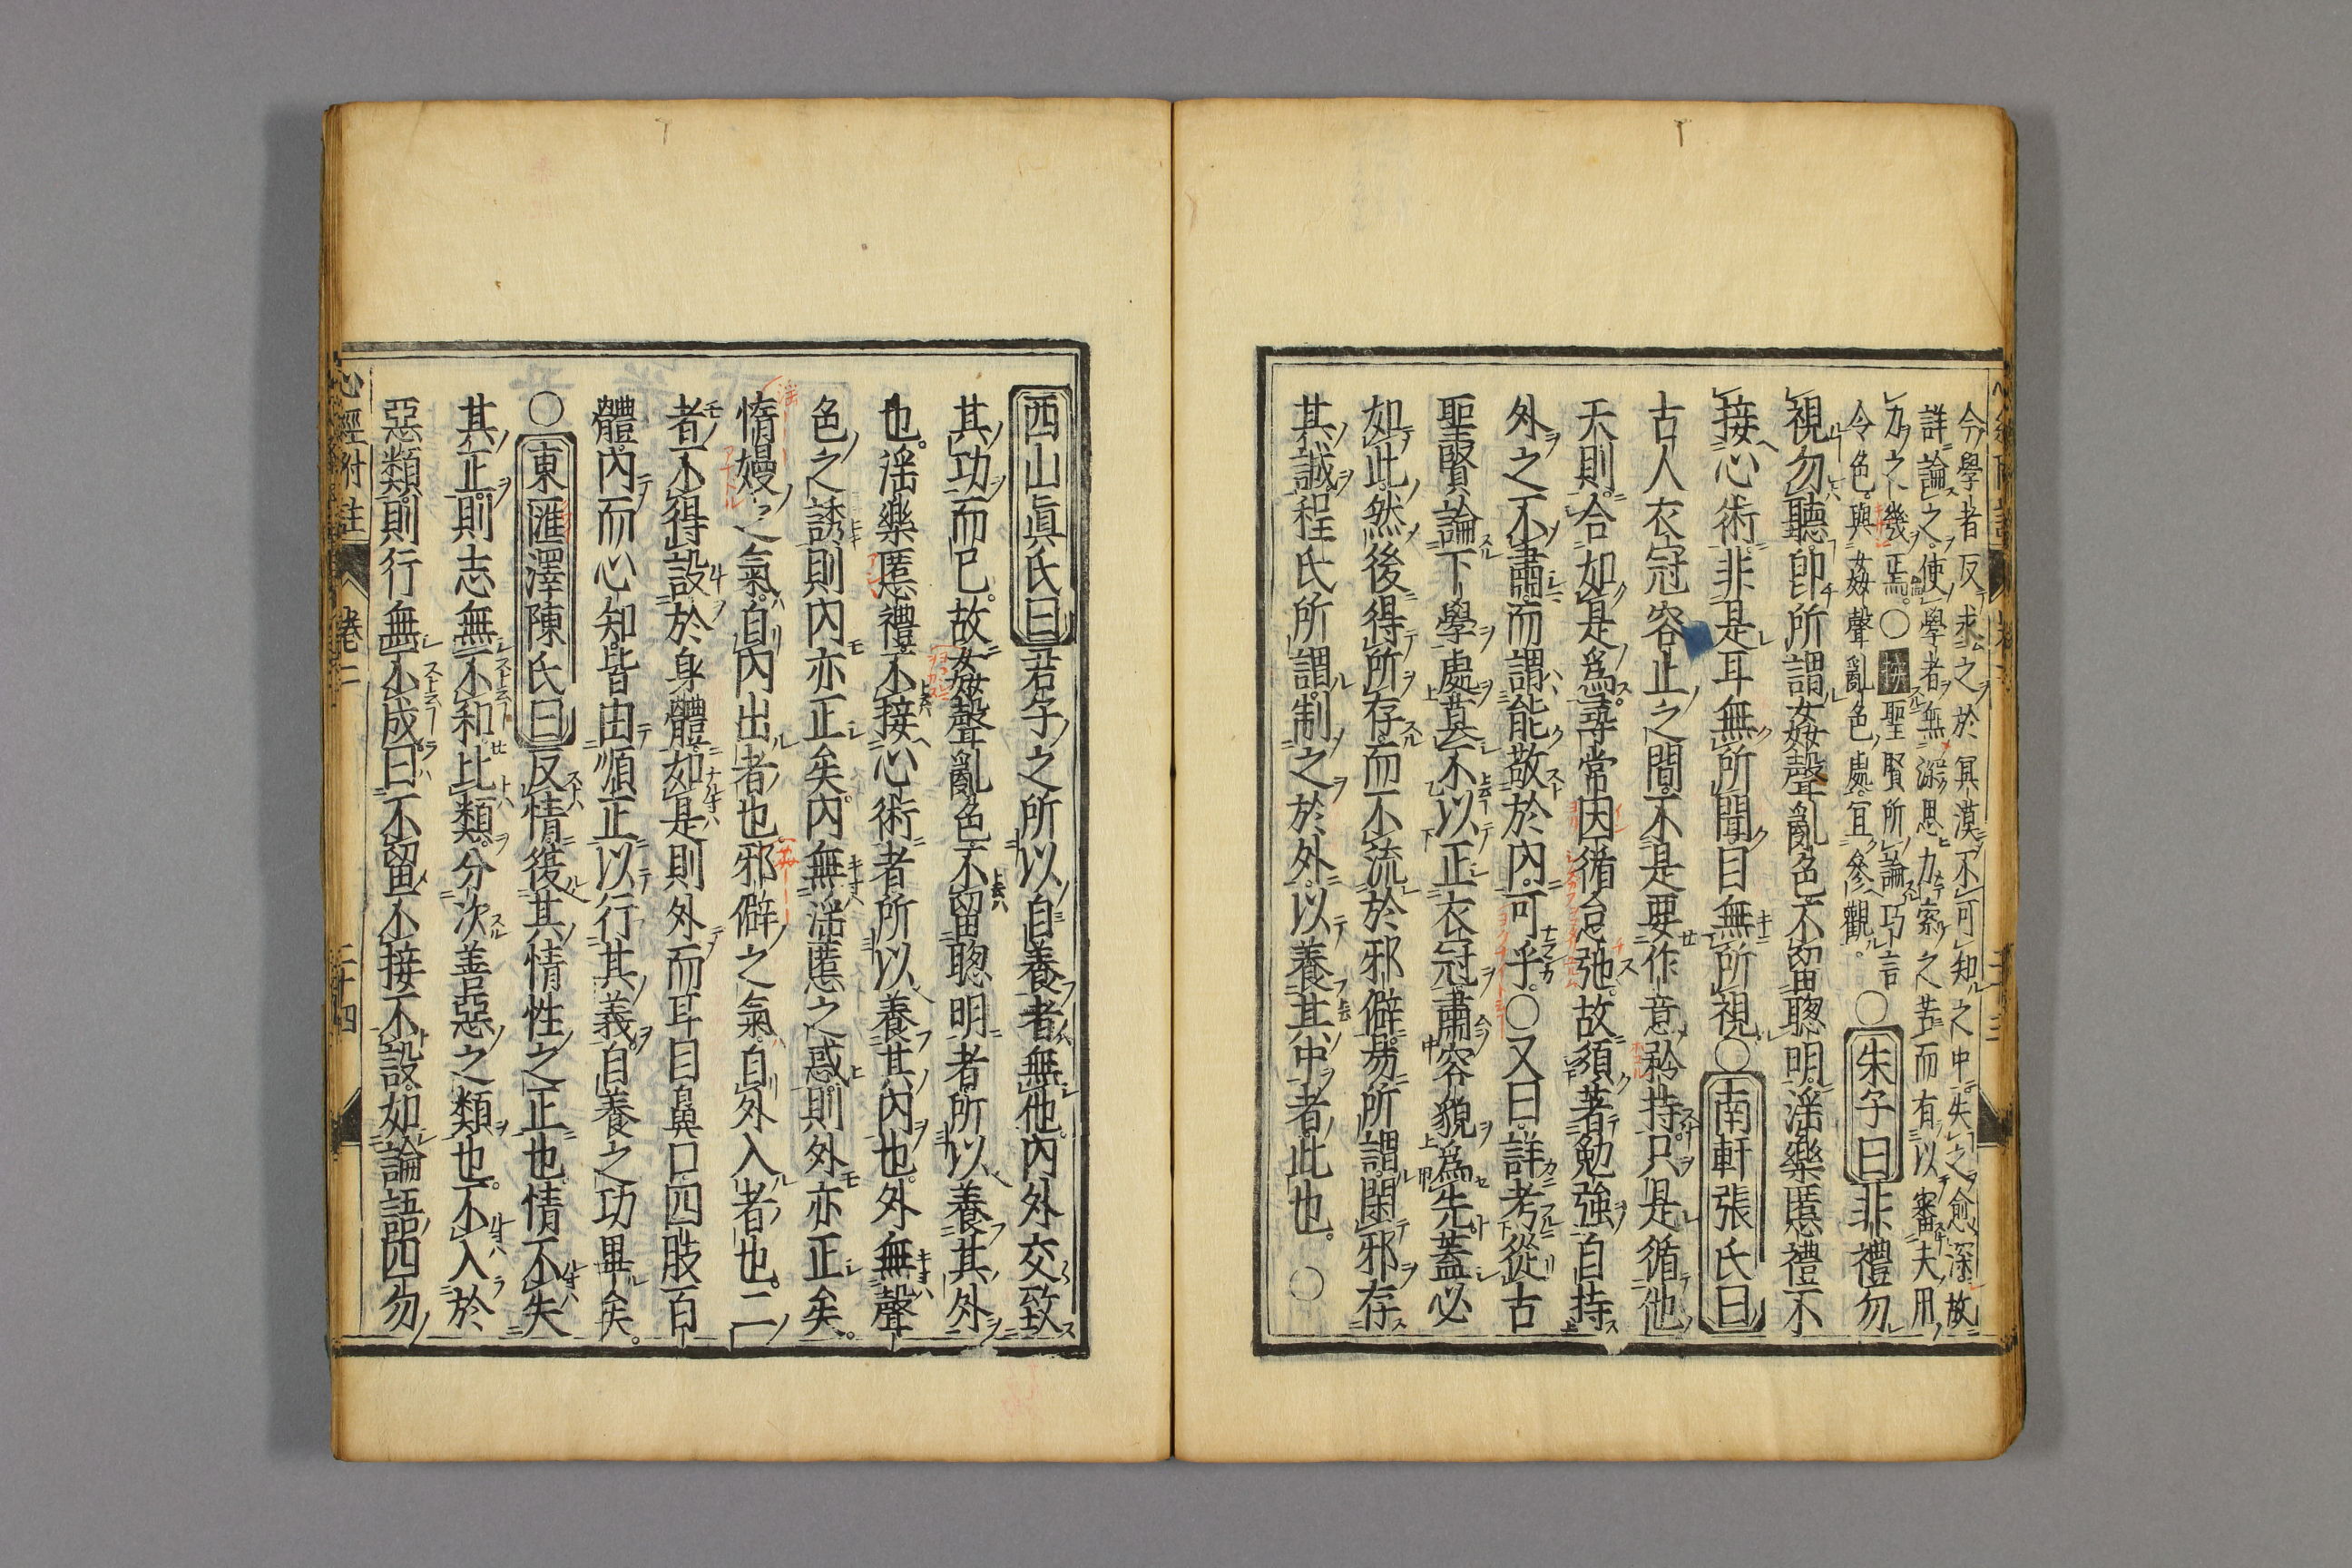 今學者反求之於冥漠不可知之中失之愈深故
詳論之使學者無深思力索之苦而有以審夫用
力之幾焉○按聖賢所論巧言
令色與姦聲亂色處宜參觀○朱子曰非禮勿
視勿聽卽所謂姦聲亂色不留聰明淫樂慝禮不
接心術非是耳無所聞目無所視○南軒張氏曰
古人衣冠容止之間不是要作意矜持只是循他
天則合如是爲尋常因循怠弛故須著勉強自持
外之不肅而謂能敬於內可乎○又曰詳考從古
聖賢論下學處莫不以正衣冠肅容貌爲先蓋必
如此然後得所存而不流於邪僻易所謂閑邪存
其誠程氏所謂制之於外以養其中者此也○
西山眞氏曰君子之所以自養者無他內外交致
其功而已故姦聲亂色不留聰明者所以養其外
也淫樂慝禮不接心術者所以養其內也外無聲
色之誘則內亦正矣內無淫慝之惑則外亦正矣
惰嫚之氣自內出者也邪僻之氣自外入者也二
者不得設於身體如是則外而耳目鼻口四肢百
體內而心知皆由順正以行其義自養之功畢矣
○東匯澤陳氏曰反情復其情性之正也情不失
其正則志無不和比類分次善惡之類也不入於
惡類則行無不成曰不留不接不設如論語四勿
心經附註　卷二　二十四